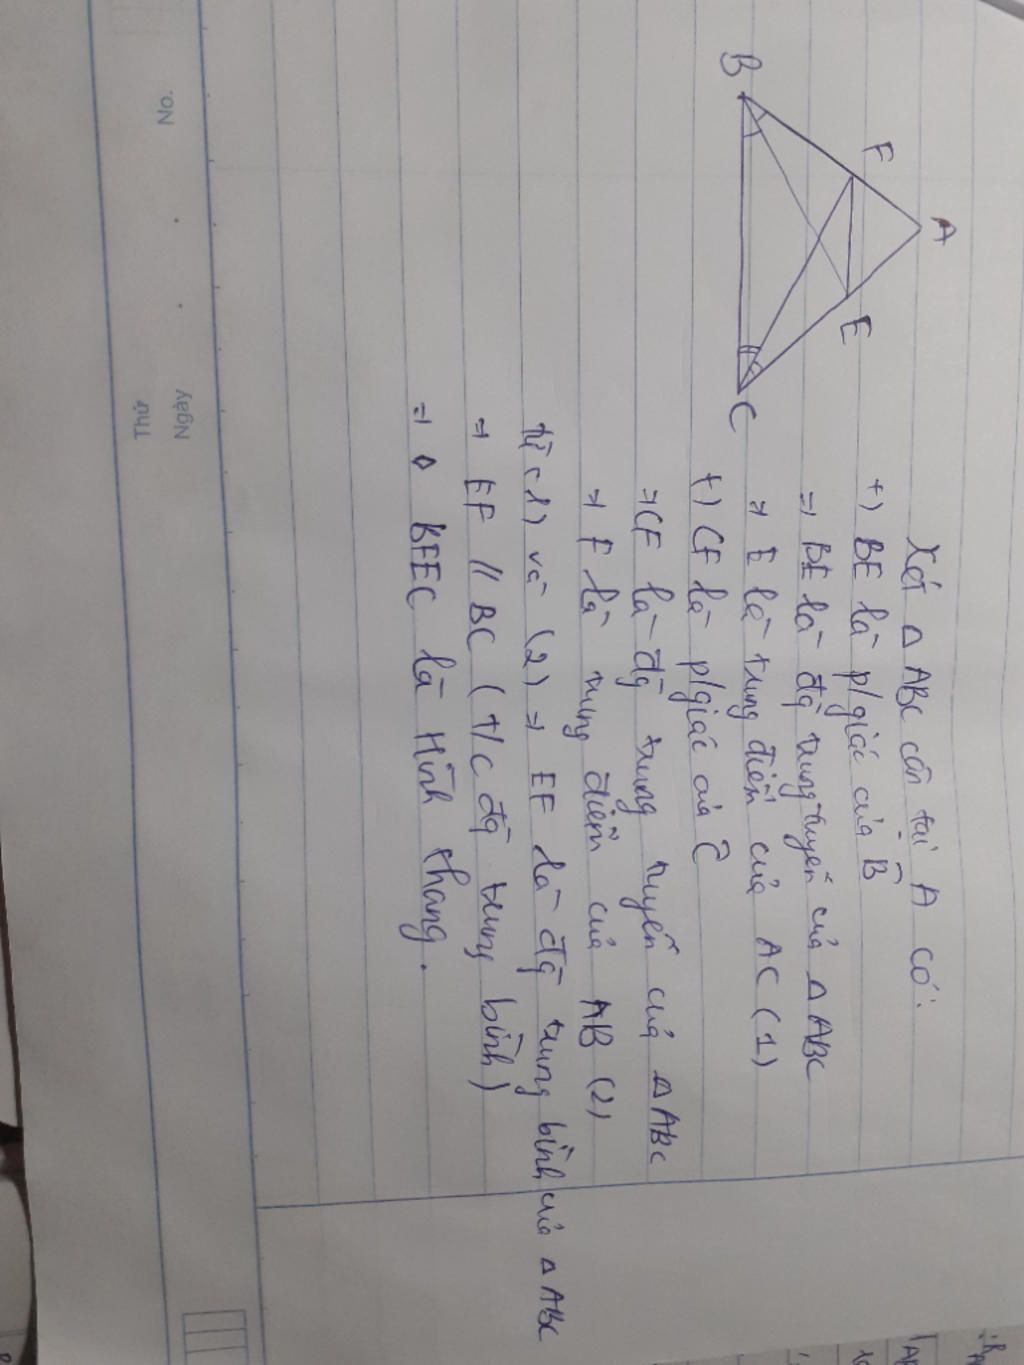 A
F
E
B
C
Xét Δ ABC cân tại A có:
+) BE là p/giác của B̂
=> BE là đg trung tuyến của Δ ABC
=> E là trung điểm của AC (1)
+) CF là p/giác của Ĉ
=> CF là đg trung tuyến của Δ ABC
=> F là trung điểm của AB (2)
từ (1) và (2) => EF là đg trung bình của Δ ABC
=> EF // BC (T/c đg trung bình)
=> ◊ BFEC là Hình thang.
Thứ
Ngày
No.